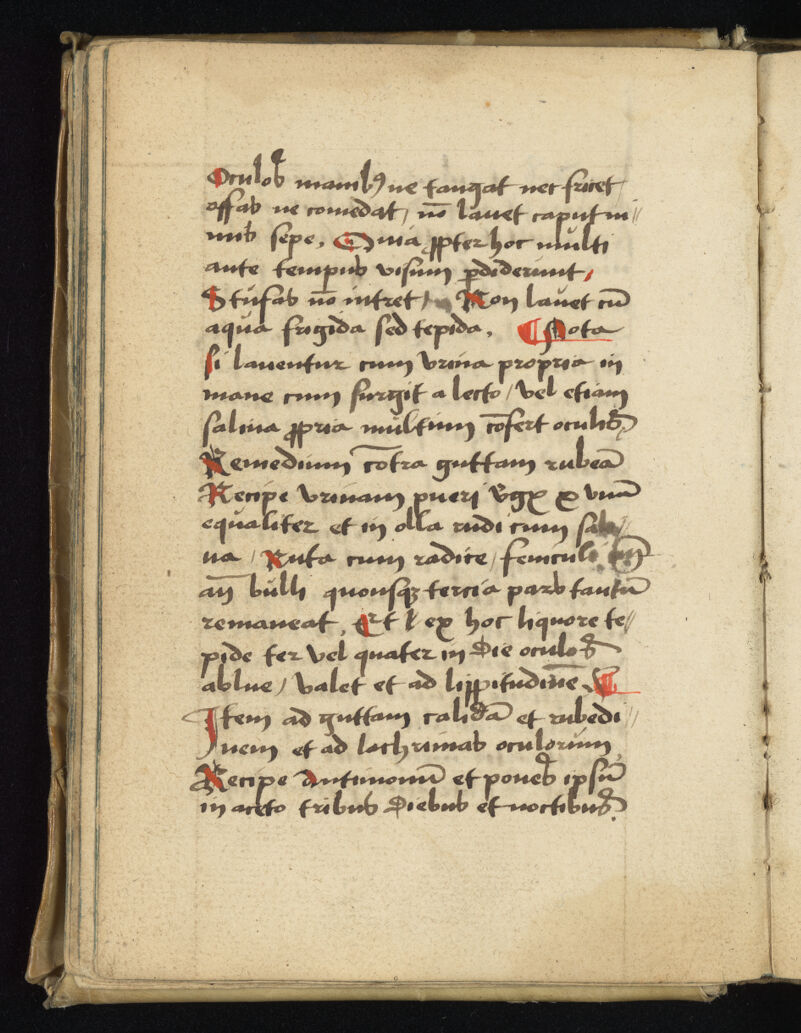 Oculos manibꝰ ne tangat nec fricet /
offas ne comedat / nō lauet caput ni //
mis sepe . Quia ꝓpter hoc multi
ante tempus visum ꝑdiderunt /
Stufas nō intret / Non lauet cū
aqua frigida sed tepida . ¶ Nota
si lauentur cum vrina propria in
mane cum surgit a lecto / vel etiam
saliua ꝓpria multum cōfert oculis
Remedium cōtra guttam rubeā
Recipe vrinam pueri
equaliter et in olla rudi cum sal //
ua / Ruta cum radice / feniculi
an̄ bulli quousqꝫ tercia pars tantū
remaneat . Et ex hoc liquore te //
pide ter vel quater in die oculos
ablue / valet et ad lippitudinē . ¶
Item ad guttam calidā et rubedi //
nem et ad lachrimas oculorum
Recipe Antimoniū et pones ipsū
in aceto tribus diebus et noctibus .